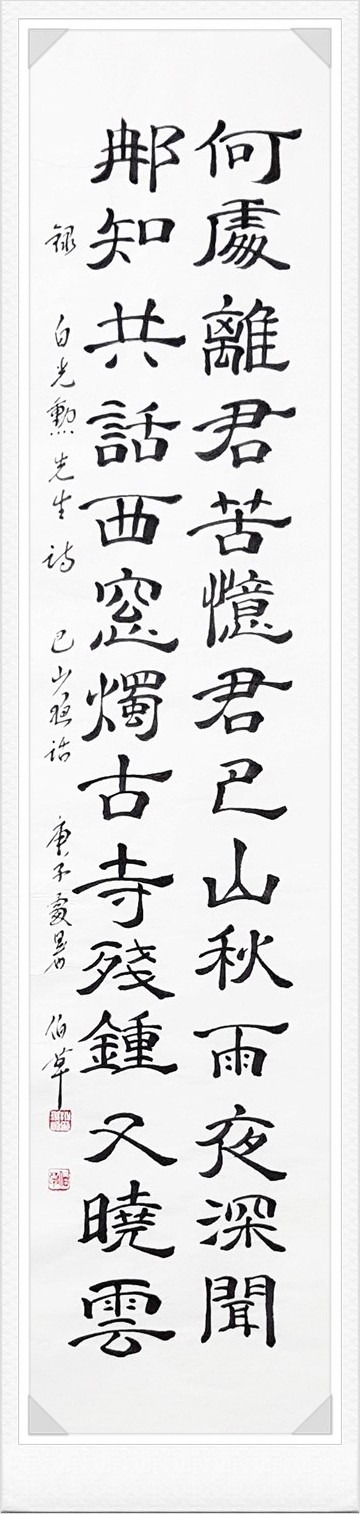 何處離君苦憶君巴山秋雨夜深聞
那知共話西窓燭古寺殘鍾又曉雲
錄 白光勲先生 詩 巴山夜話 庚子處暑 伯草